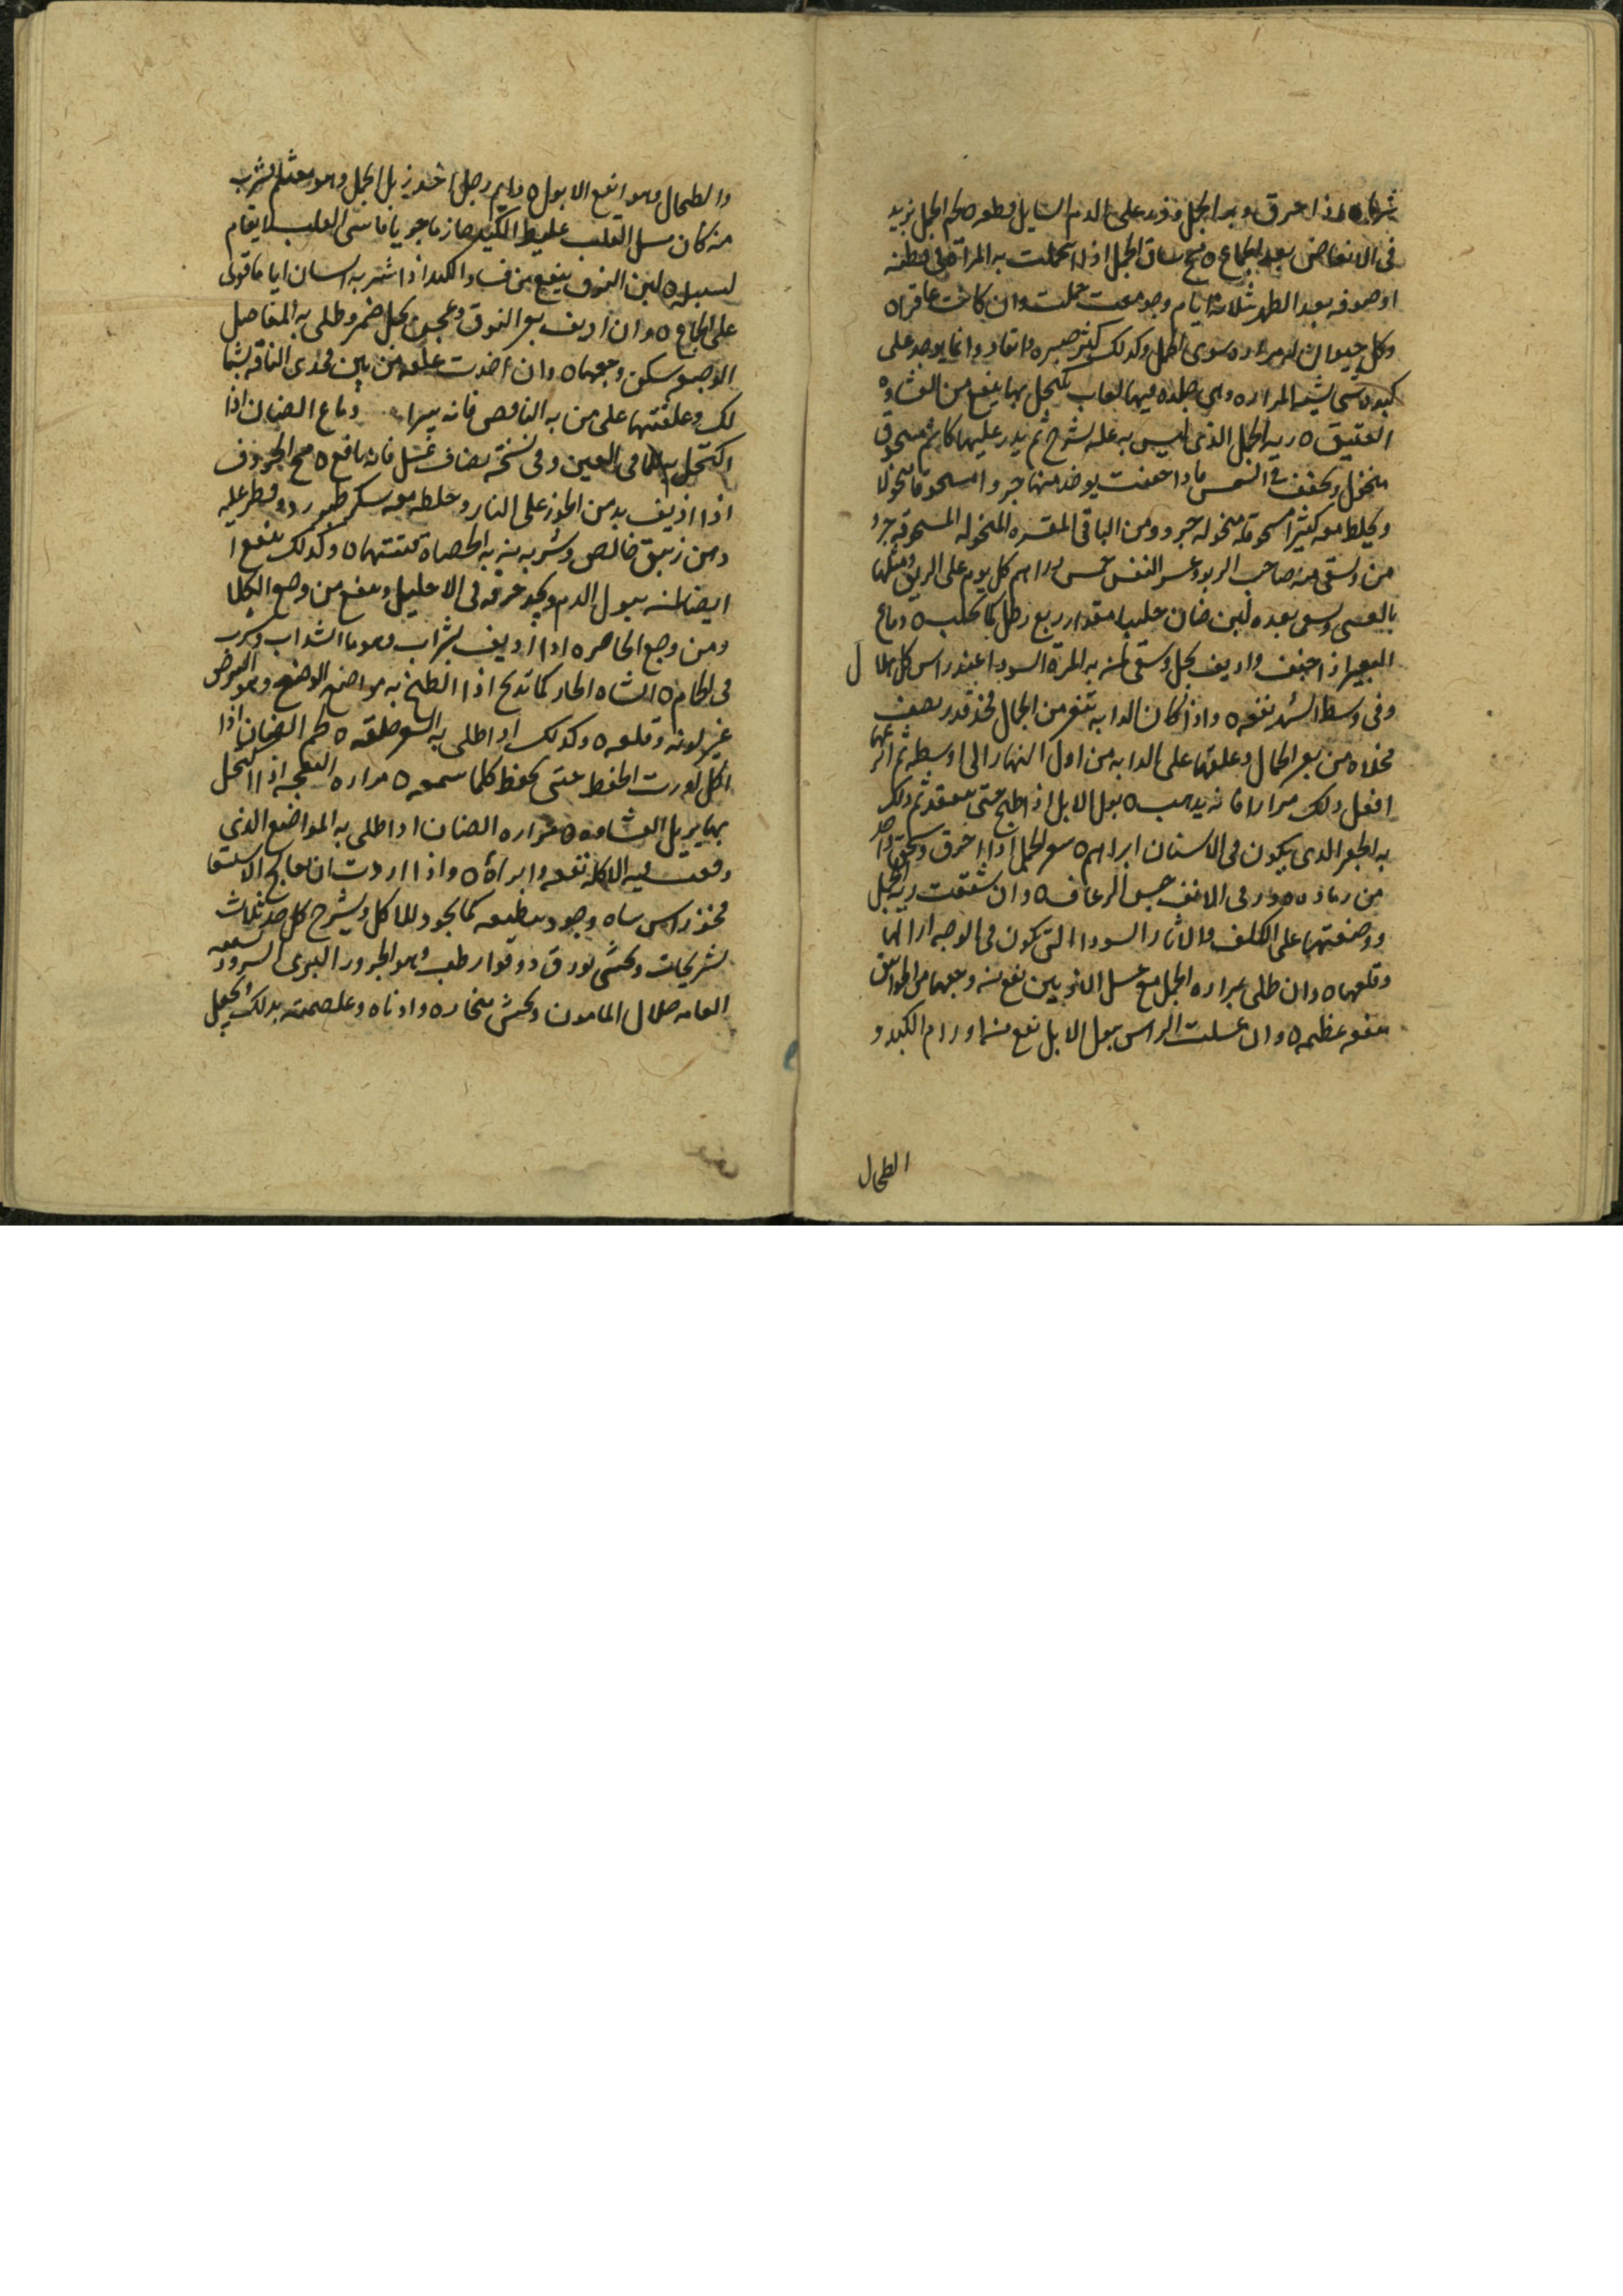 شرطا ٥ اذا احرق وبر الجمل وذر على الدم السايل قطعه ٥ لحم الجمل يزيد
فى الانعاض بعد الجماع ٥ مخ ساق الجمل اذا تحملت به المراة فى قطنه
او صوفه بعد الطهر ثلاثة ايام وجومعت حملت وان كانت عاقرا ٥
وكل حيوان له مراره سوى الجمل وكذلك كثر صبره وانقاد وانما يوجد على
كبده شى يشبه المراره وهى جلده فيها لعاب يكتحل بها ينفع من الغشاوه
العتيق ٥ ريه الجمل الذى ليس به عله تشرح ثم يذر عليها كاشم مسحوق
منخول ويجفف فى الشمس فاذا جفت يوخذ منها جزوا مسحوقا منخولا
ويخلط معه كثيرا مسحوقه منخوله جزو ومن الباقى المقشره المنخوله المسحوقه جزء
من ويسقى منه صاحب الربو وعسر النفس خمس دراهم كل يوم على الريق ومثلها
بالعشى ويسقى بعده لبن ضان حليب مقدار ربع رطل كما يحلب ٥ دماغ
البعير اذا جفف واديف بخل وسقى لمن به المرة السودا عند راس كل هلال
وفى وسط الشهر نفعه ٥ واذا كان الدابه تنفر من الجمال فخذ قدر نصف
مخلاه من بعر الجمال وعلقها على الدابه من اول النهار الى اوسطه ثم انزعها
افعل ذلك مرارا فانه يذهب ٥ بول الابل اذا طبخ حتى ينعقد ثم دلك
به الحفر الذى يكون فى الاسنان ابراهم ٥ بعر الجمل اذا احرق وسحق واخذ
من رماده وذر فى الانف حبس الرعاف ٥ وان شققت ريه الجمل
ووضعتها على الكلف والاثار السودا التى تكون فى الوجه ازالها
وقلعها ٥ وان طلى بمراره الجمل مع عسل الذين نفع منه وجعها من الخوانيق
منفعه عظيمه ٥ وان غسلت الراس ببول الابل نفع من اورام الكبد و
الطحال
والطحال وهو انفع الابول ٥ وايم رجل اخذ زبل الجمل وهو مغتلم فشرب
منه كان مسل القلب غليظ الكبد حازما جريا قاسى القلب لا يقام
لسبيله ٥ لبن النوق ينفع من فساد الكبد اذا شربه انسان اياما قوى
على الجماع ٥ وان اديف بعر النوق وعجن بخل خمر وطلى به المفاصل
الوجعه سكن وجعها ٥ وان اخذت علقه من بين فخذى الناقه بشما
لك وعلقتها على من به الناقص فانه يبرا ٥ دماغ الضان اذا
اكتحل به للما فى العين وفى نسخه يضاف عسل فانه نافع ٥ مخ الخروف
اذا اذيف بدهن الجوز على النار وخلط معه سكر طبرزد وقطر عليه
دهن زنبق خالص وشربه من به الحصاه تفتتها ٥ وكذلك ينفع ا
ايضا لمن يبول الدم ويجد حرقه فى الاحليل وينفع من وجع الكلا
ومن وجع الخاصره اذا اديف بشراب وهو ما السداب وشرب
فى الحمام ٥ الشاه الحار كما تذبح اذا الطخ به مواضع الوضح وهو البرص
غير لونه وقلعه ٥ وكذلك اذا طلى به السعر حلقه ٥ لحم الضان اذا
اكل اورث الحفظ حتى يحفظ كلما سمعه ٥ مراره النعجه اذا اكتحل
بها يزيل الغشاوه ٥ مراره الضان اذا طلى به المواضع الذى
وقعت فيه الاكله نفعه وابراه ٥ واذا اردت ان تعالج الاستسقا
فخذ راس شاه وجود تنظيفه كما يجود للاكل ويشرح كل خد ثلاث
تشريحات وتحشى بورق دوقوا رطب وهو الجزور البرى السرور تسميه
العامه صلال المامون ويحش منخاره واذناه وغلصمته بذلك ويجعل